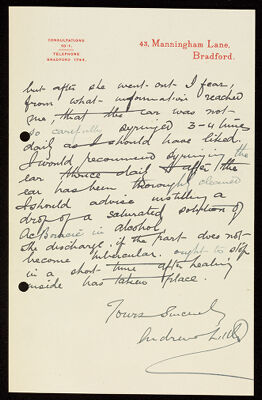 CONSULTATIONS
10-1.
TELEPHONE
BRADFORD 1744.
43, Manningham Lane,
Bradford.
but after she went out I fear,
from what information reached
me, that the ear was not
so carefully syringed 3-4 times
daily as I should have liked.
I would recommend syringing the
ear thrice daily & after the
ear has been thoroughly cleaned
I should advise instilling a
drop of a saturated solution of
Ac Boracic in alcohol.
The discharge, if the part does not
become tubercular, ought to stop
in a short time after healing
inside has taken place.
Yours Sincerely
Andrew Little